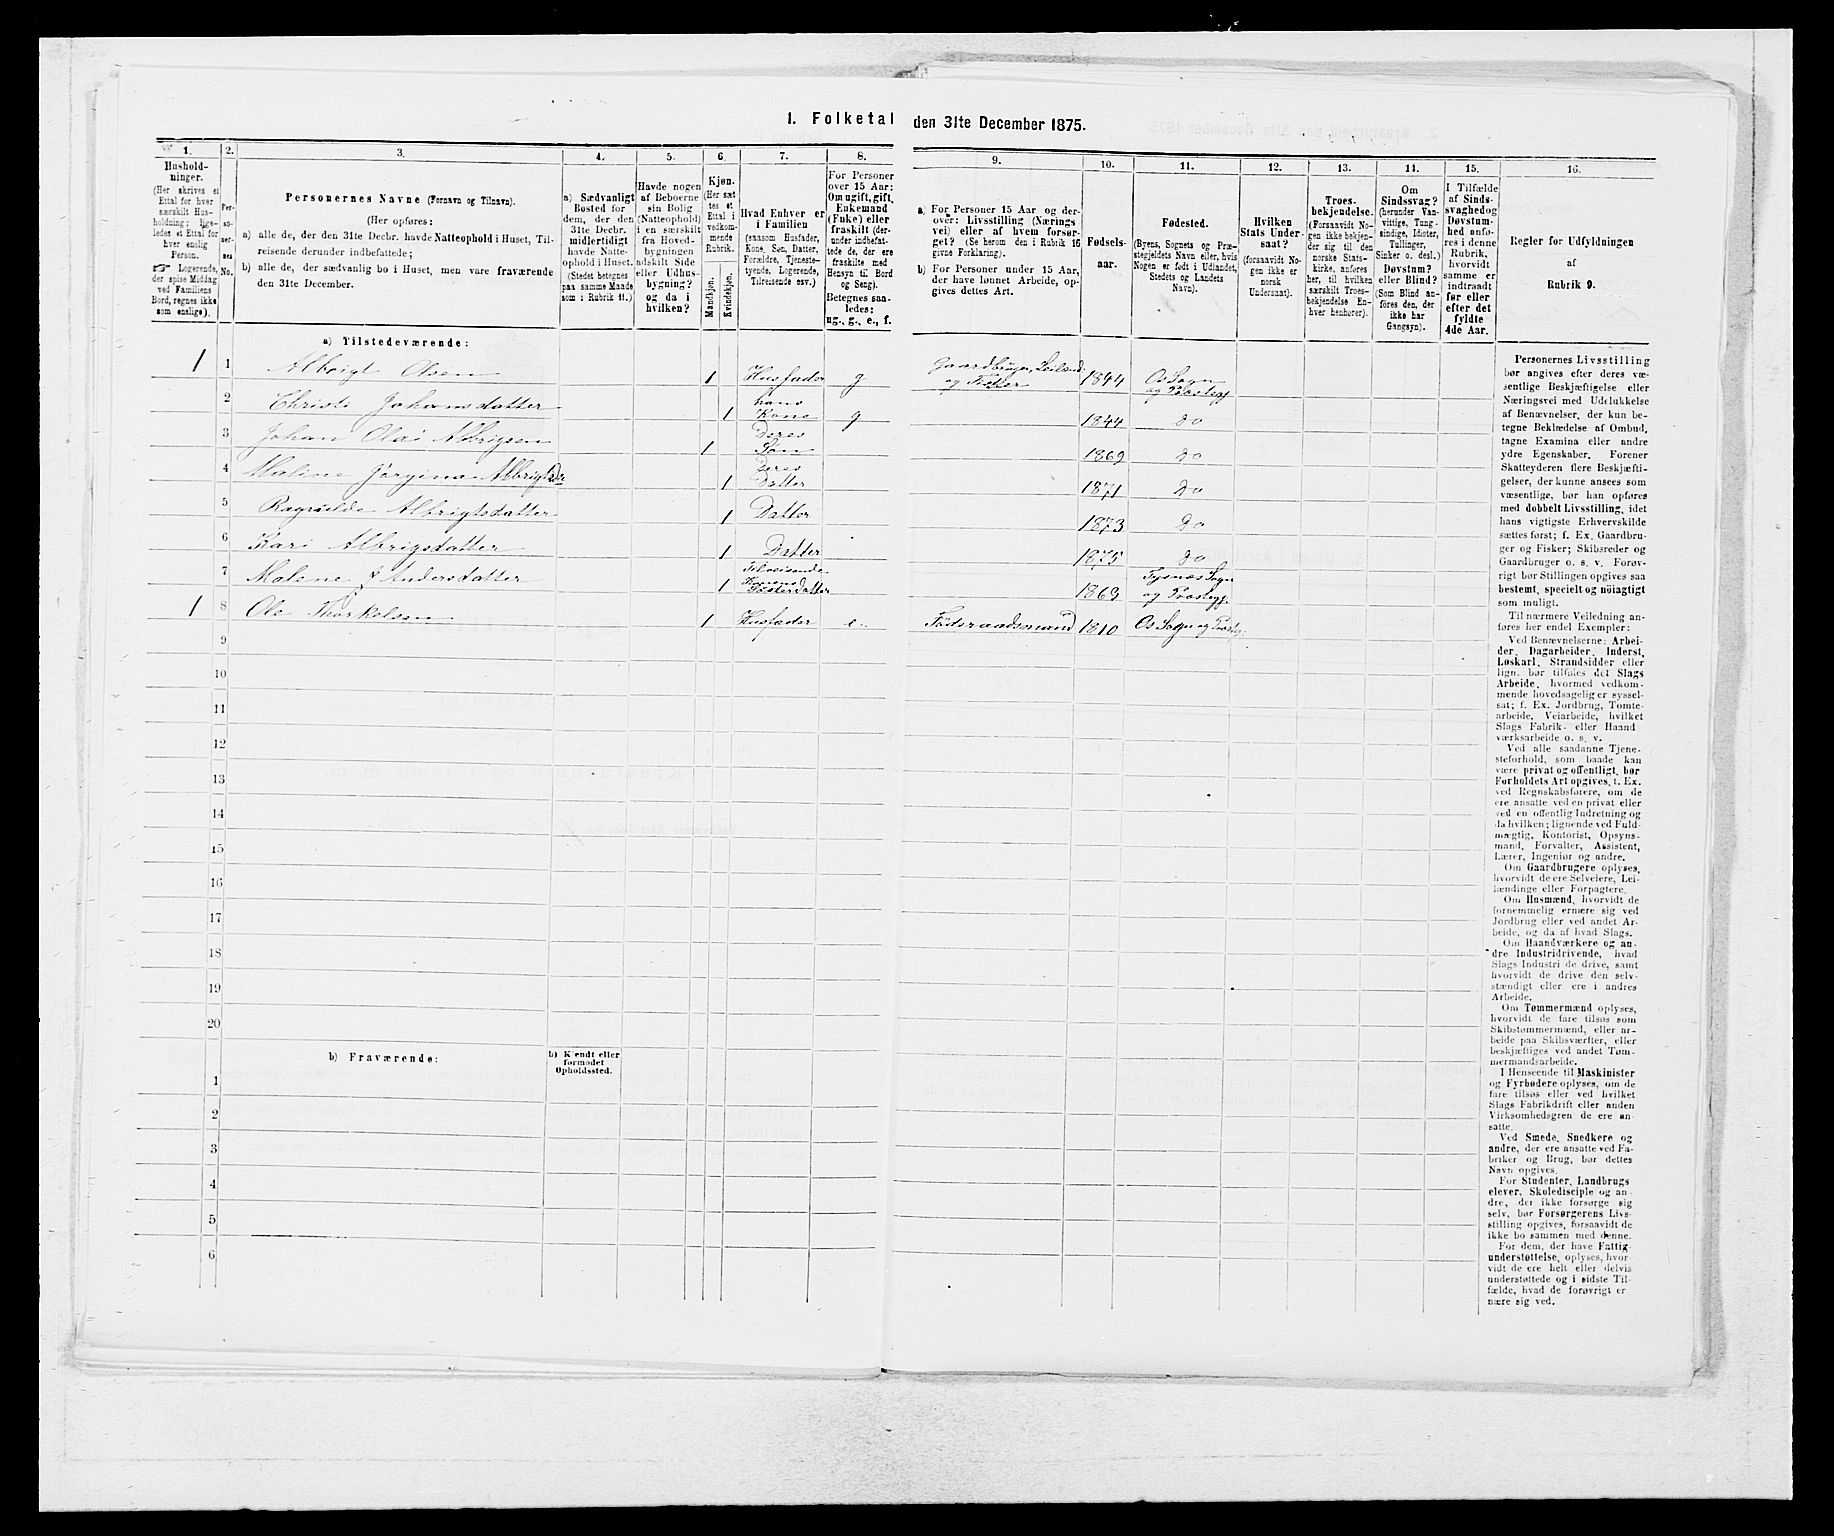 1. Folketal den 31te December 1875.
1. 2. 3. 4. 5. 6. 7. 8. 9. 10. 11. 12. 13. 14. 15. 16.
Hushold-
ninger.
(Her skrives et
Ettal for hver
særskilt Hus-
holdning; lige-
ledes et Ettal for
hver enslig
Person.
☞ Logerende,
der spise Middag
ved Familiens
Bord, regnes ikke
som enslige).
Per-
so-
ner-
nes
No.
Personernes Navne (Fornavn og Tilnavn).
(Her opføres:
a) alle de, der den 31te Decbr. havde Natteophold i Huset, Til-
reisende derunder indbefattede;
b) alle de, der sædvanlig bo i Huset, men vare fraværende
den 31te December.
a) Sædvanligt
Bosted for
dem, der den
31te Decbr.
midlertidigt
havde Natte-
ophold i Huset.
(Stedet betegnes
paa samme Maade
som i Rubrik 11.)
Havde nogen
af Beboerne
sin Bolig
(Natteophold)
i en særskilt
fra Hoved-
bygningen
adskilt Side
eller Udhus-
bygning?
og da i
hvilken?
Kjøn.
(Her sæt-
tes et
Ettal i
vedkom-
mende
Rubrik.
Mandkjøn.
Kvindekjøn.
Hvad Enhver er
i Familien
(saasom Husfader,
Kone, Søn, Datter,
Forældre, Tjeneste-
tyende, Logerende,
Tilreisende osv.)
For Personer
over 15 Aar:
Om ugift, gift,
Enkemand
(Enke) eller
fraskilt (der-
under indbefat-
tede de, der ere
fraskilte med
Hensyn til Bord
og Seng).
Betegnes saa-
ledes:
ug., g., e., f.
a) For Personer 15 Aar og der-
over: Livsstilling (Nærings
vei) eller af hvem forsør-
get? (Se herom den i Rubrik 16
givne Forklaring).
b) For Personer under 15 Aar,
der have lønnet Arbeide, op-
gives dettes Art.
Fødsels-
aar.
Fødested.
(Byens, Sognets og Præ-
stegjeldets Navn eller, hvis
Nogen er født i Udlandet,
Stedets og Landets
Navn).
Hvilken
Stats Under-
saat?
(forsaavidt No-
gen ikke er
norsk
Undersaat).
Troes-
bekjendelse.
(Forsaavidt No-
gen ikke bekjen-
der sig til den
norske Stats-
kirke, anføres
her, til hvilken
særskilt Troes-
bekjendelse En-
hver henhører).
Om
Sindssvag?
(herunder Van-
vittige, Tung-
sindige, Idioter,
Tullinger,
Sinker o. desl.)
Døvstum?
eller Blind?
(Som Blind an-
føres den, der
ikke har
Gangsyn).
I Tilfælde
af Sinds-
svaghed og
Døvstum-
hed anfø-
res i denne
Rubrik,
hvorvidt
samme er
indtraadt
før eller
efter det
fyldte
4de Aar.
Regler for Udfyldningen
af
Rubrik 9.
a) Tilstedeværende:
1 1 Albrigt Olsen 1 Husfader g Gaardbruger, Leilænd. og Fisker 1844 Os Sogn og Præstegj
2 Christi Johansdatter 1 hans Kone g 1844 Do
3 Johan Olai Albrigsen 1 Deres Søn 1869 Do
4 Maline Jørgine Albrigtsdr 1 Deres Datter 1871 Do
5 Ragnilde Albrigtsdatter 1 Datter 1873 Do
6 Kari Albrigsdatter 1 Datter 1875 Do
7 Malene J Andersdatter 1 Tilreisende Konens Søsterdatter 1863 Tysnæs Sogn og Præstegj.
1 8 Ole Thorkelsen 1 Husfader e. Føderaadsmand 1810 Os Sogn og Præstg.
9
10
11
12
13
14
15
16
17
18
19
20
b) Fraværende:
b) Kjendt eller
formodet
Opholdssted.
1
2
3
4
5
6
Personernes Livsstilling
bør angives efter deres væ-
sentlige Beskjæftigelse eller
Næringsvei med Udelukkelse
af Benævnelser, der kun be-
tegne Beklædelse af Ombud,
tagne Examina eller andre
ydre Egenskaber. Forener
Skatteyderen flere Beskjæfti-
gelser, der kunne ansees som
væsentlige, bør han opføres
med dobbelt Livsstilling, idet
hans vigtigste Erhvervskilde
sættes først; f. Ex. Gaardbru-
ger og Fisker; Skibsreder og
Gaardbruger o. s. v. Forøv-
rigt bør Stillingen opgives saa
bestemt, specielt og nøiagtigt
som muligt.
Til nærmere Veiledning an-
føres her endel Exempler:
Ved Benævnelserne: Arbei-
der, Dagarbeider, Inderst,
Løskarl, Strandsidder eller
lign. bør tilføies det Slags
Arbeide, hvormed vedkom-
mende hovedsagelig er syssel-
sat; f. Ex. Jordbrug, Tomte-
arbeide, Veiarbeide, hvilket
Slags Fabrik- eller Haand
værksarbeide o. s. v.
Ved alle saadanne Tjene-
steforhold, som baade kan
være privat og offentligt, bør
Forholdets Art opgives, t. Ex.
ved Regnskabsførere, om de
ere ansatte ved en privat eller
ved en offentlig Indretning og
da hvilken; lignende ved Fuld-
mægtig, Kontorist, Opsyns-
mand, Forvalter, Assistent,
Lærer, Ingeniør og andre.
Om Gaardbrugere oplyses,
hvorvidt de ere Selveiere, Lei-
lændinge eller Forpagtere.
Om Husmænd, hvorvidt de
fornemmelig ernære sig ved
Jordbrug eller ved andet Ar-
beide, og da af hvad Slags.
Om Haandværkere og an-
dre Industridrivende, hvad
Slags Industri de drive, samt
hvorvidt de drive den selv-
stændigt eller ere i andres
Arbeide.
Om Tømmermænd oplyses,
hvorvidt de fare tilsøs som
Skibstømmermænd, eller ar-
beide paa Skibsværfter, eller
beskjæftiges ved andet Tøm-
mermandsarbeide.
I Henseende til Maskinister
og Fyrbødere oplyses, om de
fare tilsøs eller ved hvilket
Slags Fabrikdrift eller anden
Virksomhedsgren de ere an-
satte.
Ved Smede, Snedkere og
andre, der ere ansatte ved Fa-
briker og Brug, bør dettes
Navn opgives.
For Studenter, Landbrugs
elever, Skoledisciple og an-
dre, der ikke forsørge sig
selv, bør Forsørgerens Livs-
stilling opgives, forsaavidt de
ikke bo sammen med denne.
For dem, der have Fattig-
understøttelse, oplyses, hvor-
vidt de ere helt eller delvis
understøttede og i sidste Til-
fælde, hvad de forøvrigt er
nære sig ved.